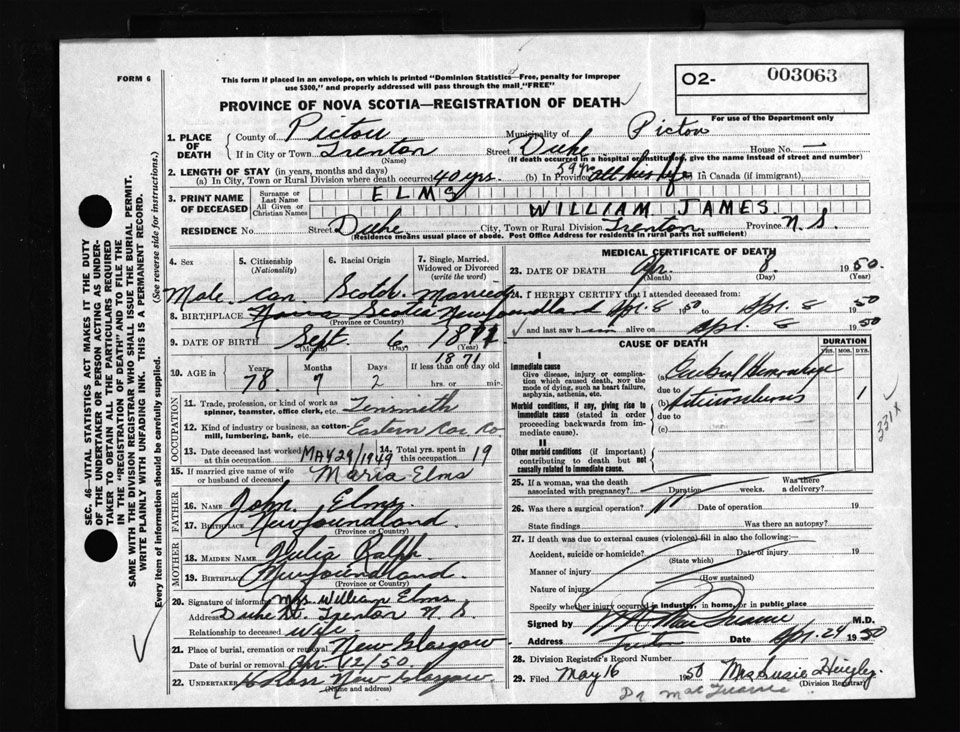 FORM 6
This form if placed in an envelope, on which is printed "Dominion Statistics—Free, penalty for improper
use $300," and properly addressed will pass through the mail "FREE"
O2- 003063
For use of the Department only
PROVINCE OF NOVA SCOTIA—REGISTRATION OF DEATH
1. PLACE OF DEATH County of Pictou Municipality of Pictou
If in City or Town Trenton (Name) Street Duke House No. —
(If death occurred in a hospital or institution, give the name instead of street and number)
2. LENGTH OF STAY (in years, months and days)
(a) In City, Town or Rural Division where death occurred 40 yrs. (b) In Province all his life in Canada (if immigrant)
3. PRINT NAME OF DECEASED Surname or Last Name ELMS
All Given or Christian Names WILLIAM JAMES
RESIDENCE No. Street Duke City, Town or Rural Division Trenton Province N.S.
(Residence means usual place of abode. Post Office Address for residents in rural parts not sufficient)
4. Sex 5. Citizenship (Nationality) 6. Racial Origin 7. Single, Married, Widowed or Divorced (write the word)
Male Can. Scotch Married
8. BIRTHPLACE Nova Scotia Newfoundland
(Province or Country)
9. DATE OF BIRTH Sept. 6 1871
(Month) (Day) (Year)
1871
10. AGE in Years Months Days If less than one day old
78 7 2 hrs. or min.
OCCUPATION
11. Trade, profession, or kind of work as spinner, teamster, office clerk, etc. Tinsmith
12. Kind of industry or business, as cotton-mill, lumbering, bank, etc. Eastern Car Co
13. Date deceased last worked at this occupation MAY 29/1949 14. Total yrs. spent in this occupation 19
15. If married give name of wife or husband of deceased Maria Elms
FATHER
16. Name John Elms
17. Birthplace Newfoundland
(Province or Country)
MOTHER
18. Maiden Name Julia Ralph
19. Birthplace Newfoundland
(Province or Country)
20. Signature of informant Mrs. William Elms
Address Duke St. Trenton N S
Relationship to deceased wife
21. Place of burial, cremation or removal New Glasgow
Date of burial or removal Apr 12/50.
22. UNDERTAKER Ross New Glasgow
(Name and address)
MEDICAL CERTIFICATE OF DEATH
23. DATE OF DEATH Ap. 8 1950
(Month) (Day) (Year)
24. I HEREBY CERTIFY that I attended deceased from:
Apl. 8 1950 to Apl. 8 1950
and last saw him alive on Apl. 8 1950
CAUSE OF DEATH DURATION
YRS. MOS. DYS.
I
Immediate cause
Give disease, injury or complication which caused death, not the mode of dying, such as heart failure, asphyxia, asthenia, etc.
(a) Cerebral Hemorrhage
due to
Morbid conditions, if any, giving rise to immediate cause (stated in order proceeding backwards from immediate cause).
(b) Arteriosclerosis 1
due to
(c)
II
Other morbid conditions (if important) contributing to death but not causally related to immediate cause.
331X
25. If a woman, was the death associated with pregnancy? Duration weeks. Was there a delivery?
26. Was there a surgical operation? Date of operation 19
State findings Was there an autopsy?
27. If death was due to external causes (violence) fill in also the following:—
Accident, suicide or homicide? Date of injury 19
(State which)
Manner of injury
(How sustained)
Nature of injury
Specify whether injury occurred in industry, in home, or in public place
Signed by M.D.
Address Date Apl. 24 1950
28. Division Registrar's Record Number
29. Filed May 16 1950 Mrs Susie
(Division Registrar)
SEC. 46—VITAL STATISTICS ACT MAKES IT THE DUTY
OF THE UNDERTAKER OR PERSON ACTING AS UNDER-
TAKER TO OBTAIN ALL THE PARTICULARS REQUIRED
IN THE "REGISTRATION OF DEATH" AND TO FILE THE
SAME WITH THE DIVISION REGISTRAR WHO SHALL ISSUE THE BURIAL PERMIT.
WRITE PLAINLY WITH UNFADING INK. THIS IS A PERMANENT RECORD.
Every item of information should be carefully supplied. (See reverse side for instructions.)